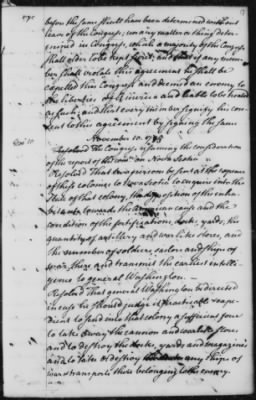 1775
before the same shall have been determined without
leave of the Congress, nor any matter or thing deter-
mined in Congress, which a majority of the Congress
shall order to be kept secret, and that if any mem-
ber shall violate this agreement he shall be
expelled this Congress and deemed an enemy to
the liberties of America and liable to be treated
as such; and that every member signify his con-
sent to this agreement by signing the same
November 10. 1775
Nov: 10
Resolved The Congress resuming the consideration
of the report of the comee on Nova Scotia
Resolved That two persons be sent at the expence
of these colonies to Nova scotia to enquire into the
state of that colony, the disposition of the inha-
bitants towards the American cause and the
condition of the fortifications, docks, yards, the
quantity of artillery and warlike stores, and
the number of soldiers, sailors and ships of
war, there and transmit the earliest intelli-
gence to general Washington.
Resolved That general Washington be directed
in case he should judge it practicable & expe-
dient to send into that colony a sufficient force
to take away the cannon and warlike stores
and to destroy the docks, yards and magazines
and to take or destroy any ships of
war & transports there belonging to the enemy.